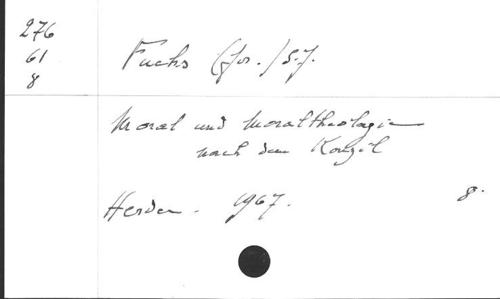 276
61
8
Fuchs (Jos.) S.J.
Moral und Moraltheologie
nach dem Konzil
Herder - 1967. 8.